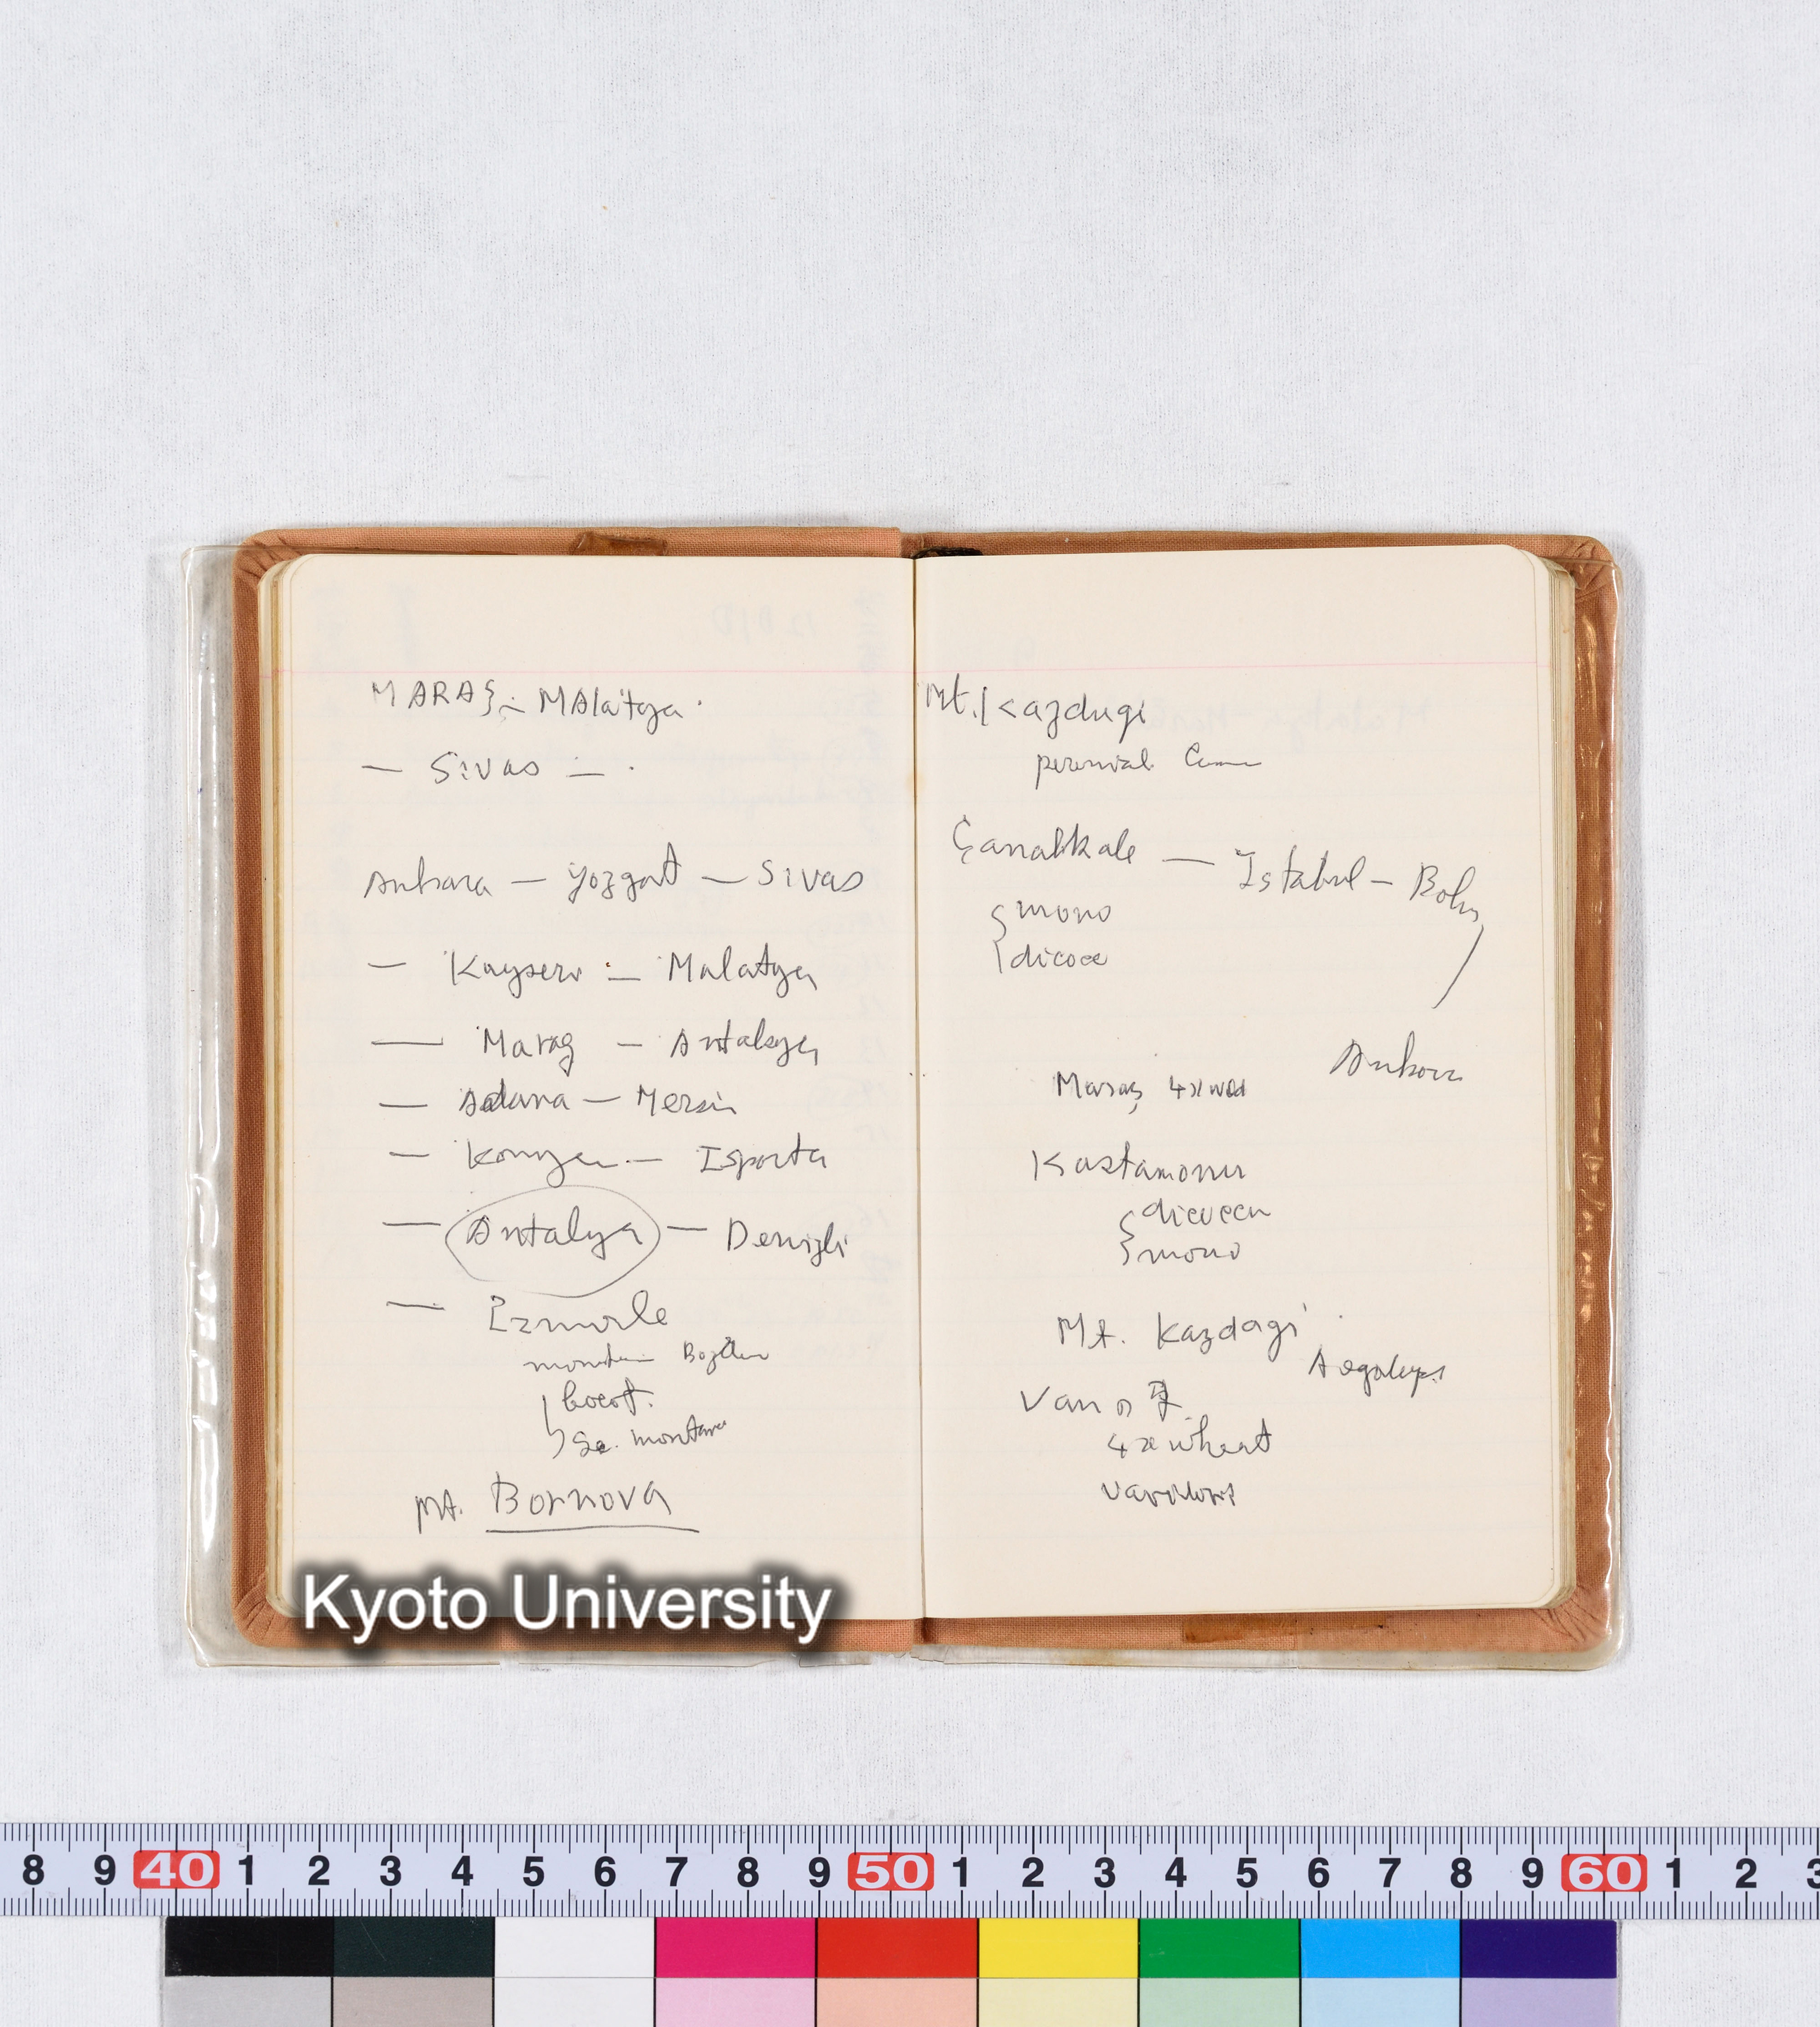 MARAŞ - MAlatya
— Sivas —
Ankara — Yozgat — Sivas
— Kayseri — Malatya
— Maraş — Antakya
— Adana — Mersin
— Konya — Isparta
— Antalya — Denizli
— Izmirle
boeot.
Se. montana
Mt. Bornova
Mt. Kazdagi
perennial
Çanakkale — Istabul — Bolu
mono
dicocc
Ankara
Maraş 4x wild
Kastamonu
mono
Mt. Kazdagi
Van の
4x wheat
Kyoto University
8 9 40 1 2 3 4 5 6 7 8 9 50 1 2 3 4 5 6 7 8 9 60 1 2 3